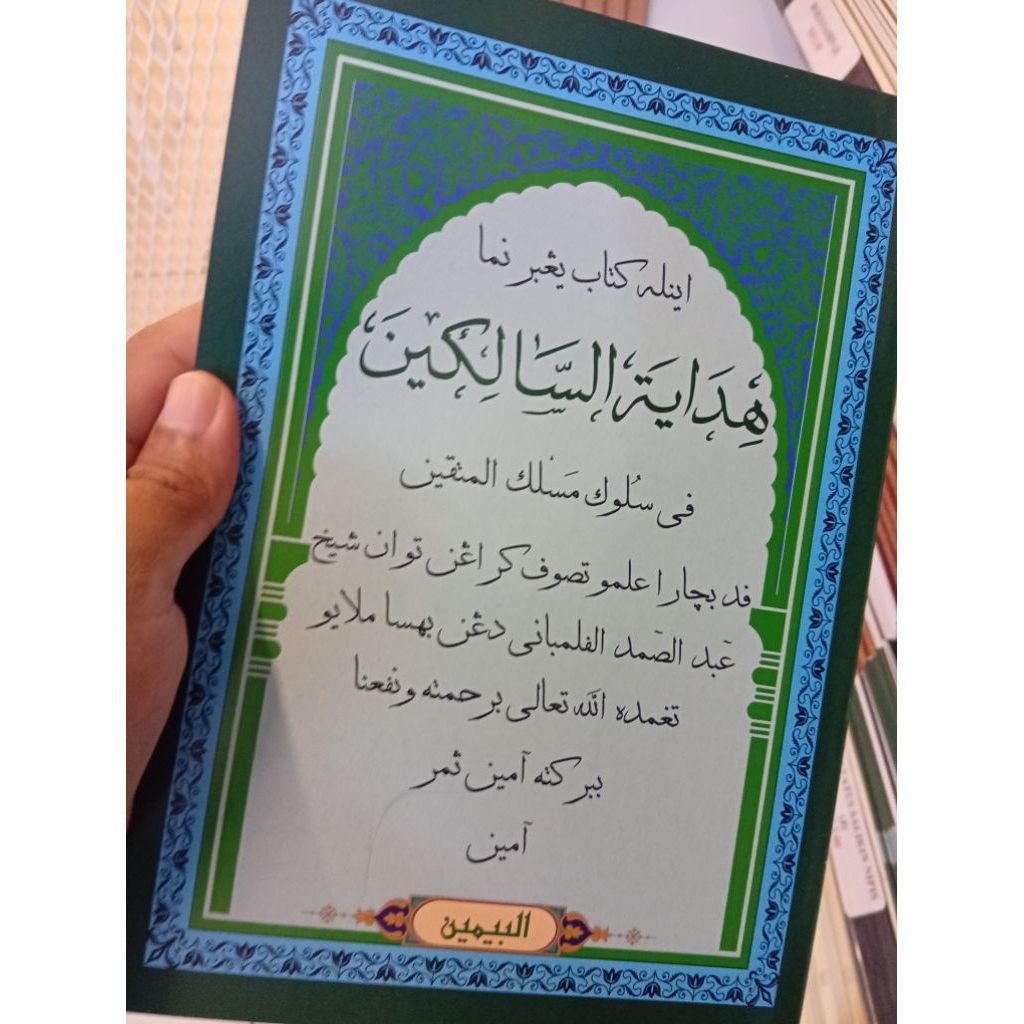 اينله كتاب يڠبر نما
هِدَايَة السَّالِكِينَ
فى سُلوك مَسْلك المتقين
فد بچارا علمو تصوف كراڠن توان شيخ
عَبد الصَّمد الفلمبانى دڠن بهسا ملايو
تغمده الله تعالى برحمته ونفعنا
ببركته آمين ثمر
آمين
البيمين